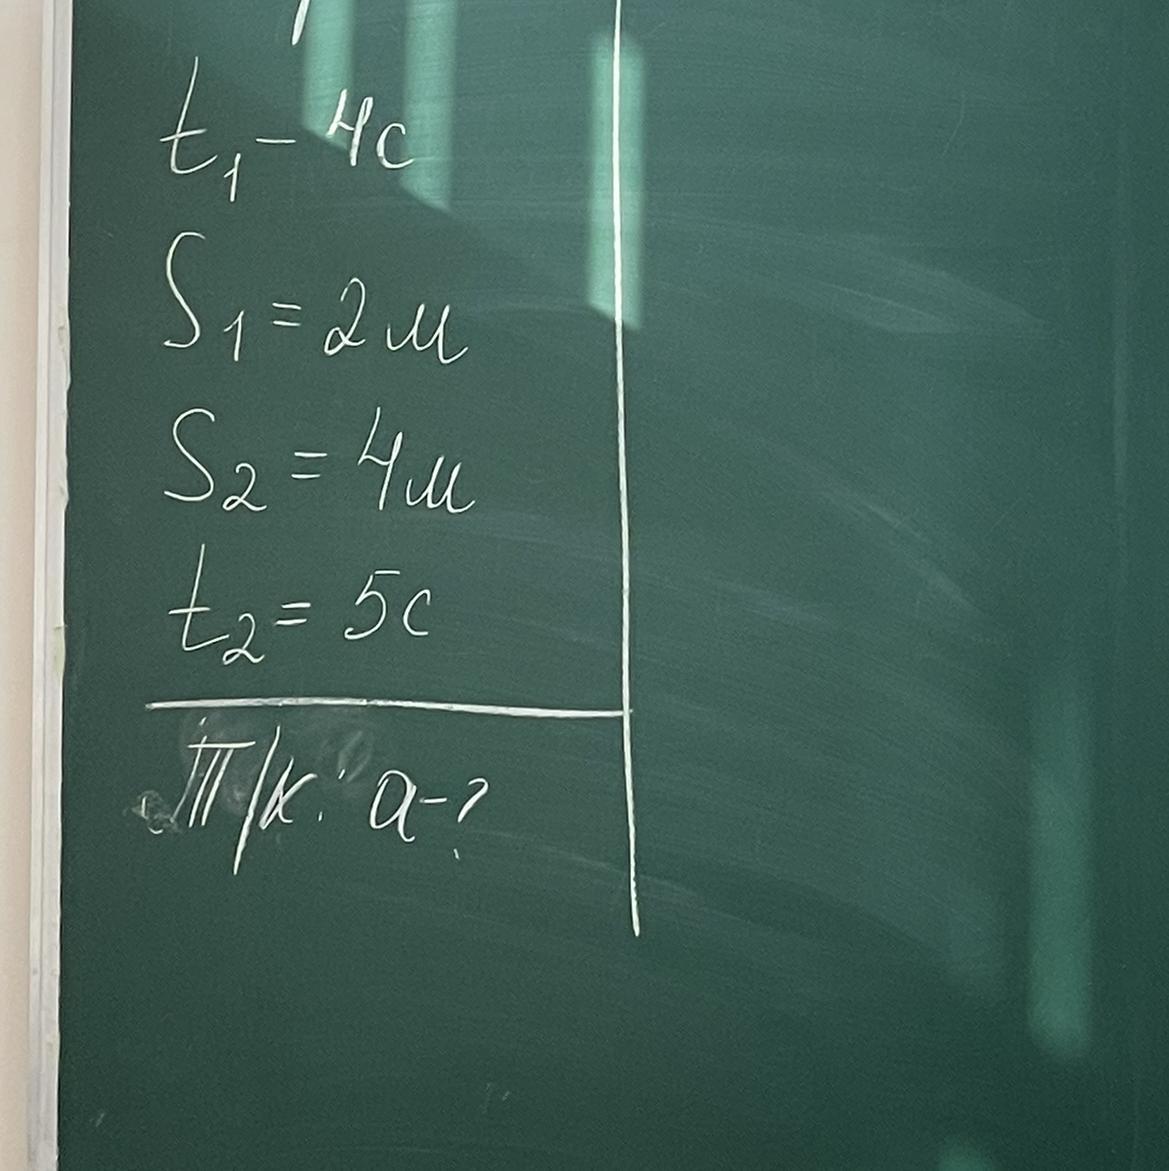 t₁ - 4с
S₁ = 2м
S₂ = 4м
t₂ = 5с
П/к: a - ?